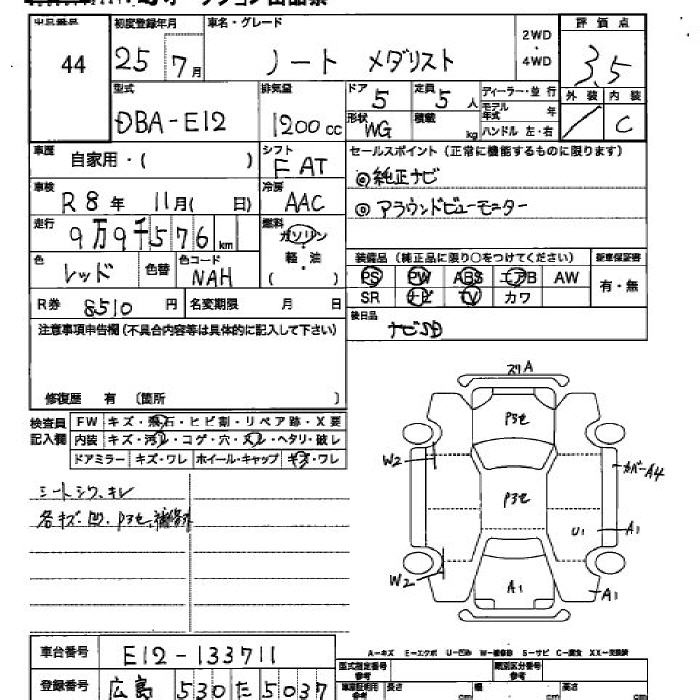 44
初度登録年月 25 7月
車名・グレード ノート メダリスト
2WD・4WD
評価点 3.5
外装 内装 C
型式 DBA-E12
排気量 1200cc
ドア 5 定員 5人
形状 WG 積載 kg
ディーラー・並行
モデル年式 年
ハンドル 左・右
車歴 自家用・( )
シフト FAT
セールスポイント(正常に機能するものに限ります)
◎純正ナビ
◎アラウンドビューモニター
車検 R8年 11月( 日)
冷房 AAC
走行 9万9千576km
燃料 ガソリン・軽・油 ( )
色 レッド 色替 色コード NAH
装備品(純正品に限り○をつけてください)
PS PW ABS エアB AW
SR ナビ TV カワ
新車保証書 有・無
R券 8510円 名変期限 月 日
後日品 ナビSD
注意事項申告欄(不具合内容等は具体的に記入して下さい)
修復歴 有 〔箇所 〕
検査員記入欄
FW キズ・飛石・ヒビ割・リペア跡・X要
内装 キズ・汚レ・コゲ・穴・スレ・ヘタリ・破レ
ドアミラー キズ・ワレ ホイール・キャップ キズ・ワレ
シートシワ、キレ
各キズ、凹、P3セ、補修跡
スリA
P3セ
W2
カバーA4
P3セ
U1
A1
W2
A1
A1
A-キズ E-エクボ U-凹み W-補修跡 S-サビ C-腐食 XX-交換済
車台番号 E12-133711
型式指定番号 類別区分番号
登録番号 広島 530 た 5037
長さ cm 幅 cm 高さ cm